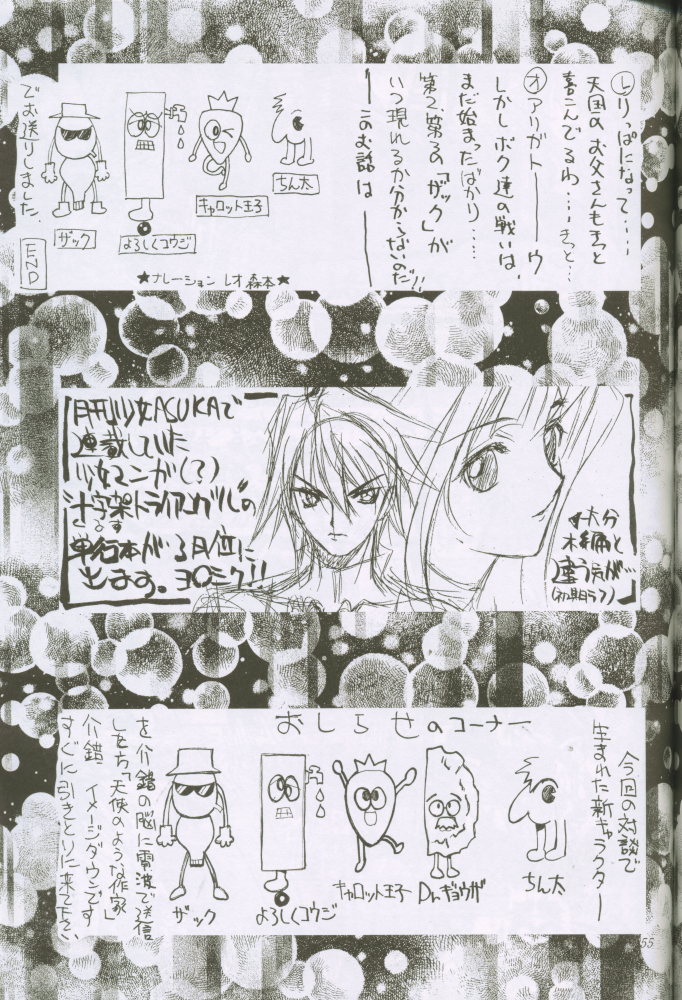 Ⓛりっぱになって‥‥
天国の お父さんもきっと
喜こんでるわ‥‥きっと‥
㋔アリガトーーウ
しかし ボク達の戦いは、
まだ始まったばかり‥‥
第2、第3の「ザック」が
いつ現れるか分からないのだ!!
――このお話は――
ちん太
キャロット王子
よろしくコウジ
ザック
★ナレーション レオ森本★
でお送りしました。
END
月刊少女ASUKAで
連載していた
少女マンガ(?)
十字架トライアングルの
単行本が3月位に
出ます。ヨロシク!!
大分
本編と
違う気が…
(初期ラフ)
おしらせのコーナー
今回の対談で
生まれた新キャラクター
ちん太
Dr.ギョウザ
キャロット王子
よろしくコウジ
ザック
を介錯の脳に電波で送信
した方「天使のような作家
介錯」イメージダウンです
すぐに引きとりに来て下さい
55